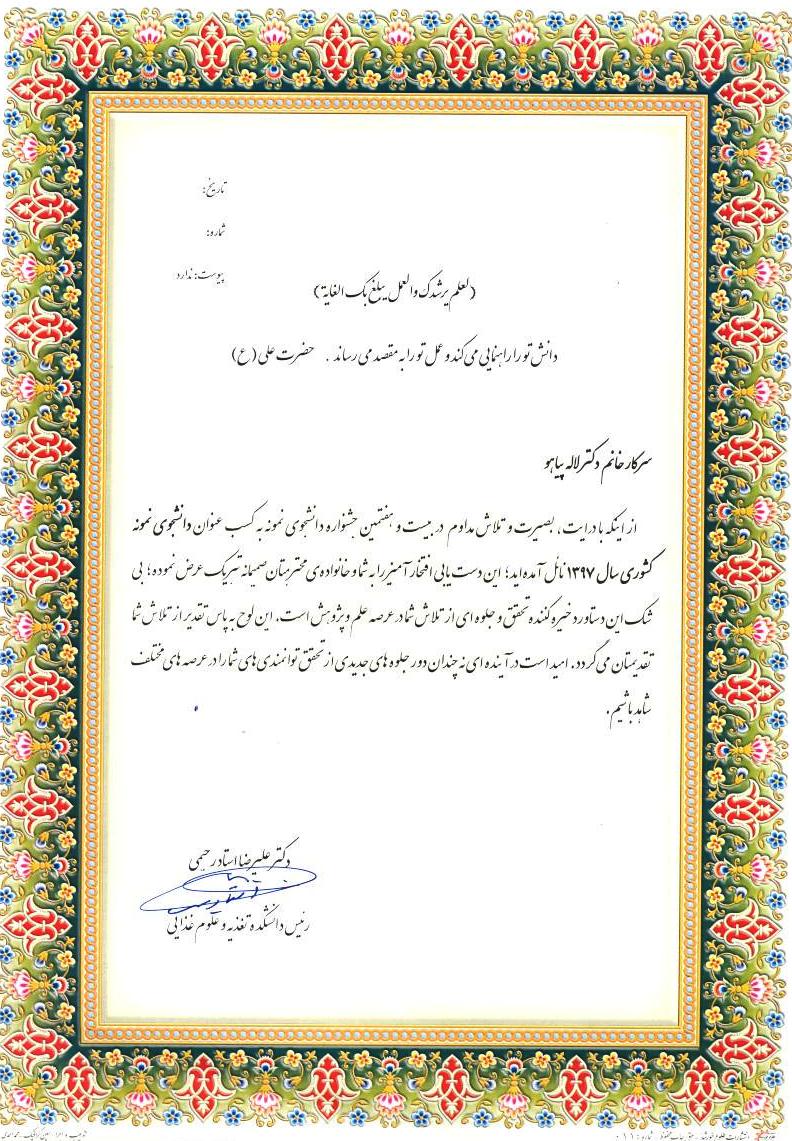 تاریخ:
شماره:
پیوست: ندارد
(لعلم یرشدک والعمل یبلغ بک الغایة)
دانش تو را راهنمایی می کند و عمل تو را به مقصد می رساند . حضرت علی (ع)
سرکار خانم دکتر لاله پیاهو
از اینکه با درایت، بصیرت و تلاش مداوم در بیست و هفتمین جشنواره دانشجوی نمونه به کسب عنوان دانشجوی نمونه
کشوری سال ۱۳۹۷ نائل آمده اید؛ این دست یابی افتخار آمیز را به شما و خانواده ی محترمتان صمیمانه تبریک عرض نموده؛ بی
شک این دستاورد خیره کننده تحقق و جلوه ای از تلاش شما در عرصه علم و پژوهش است. این لوح به پاس تقدیر از تلاش شما
تقدیمتان می گردد. امید است در آینده ای نه چندان دور جلوه های جدیدی از تحقق توانمندی های شما را در عرصه های مختلف
شاهد باشیم.
دکتر علیرضا استادرحیمی
رئیس دانشکده تغذیه و علوم غذایی